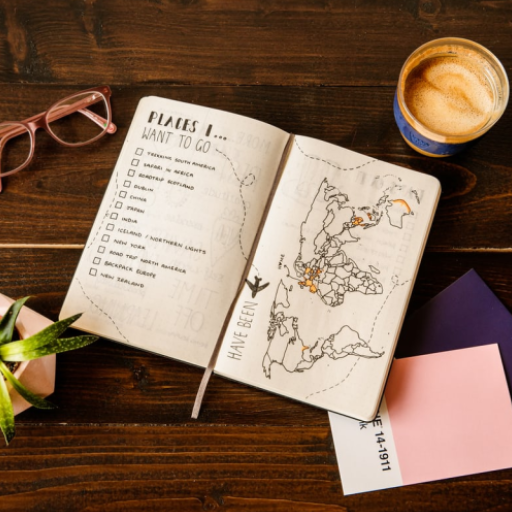 PLACES I...
WANT TO GO
TREKKING SOUTH AMERICA
SAFARI IN AFRICA
ROADTRIP SCOTLAND
DUBLIN
CHINA
JAPAN
INDIA
ICELAND / NORTHERN LIGHTS
NEW YORK
ROAD TRIP NORTH AMERICA
BACKPACK EUROPE
NEW ZEALAND
HAVE BEEN
14-1911